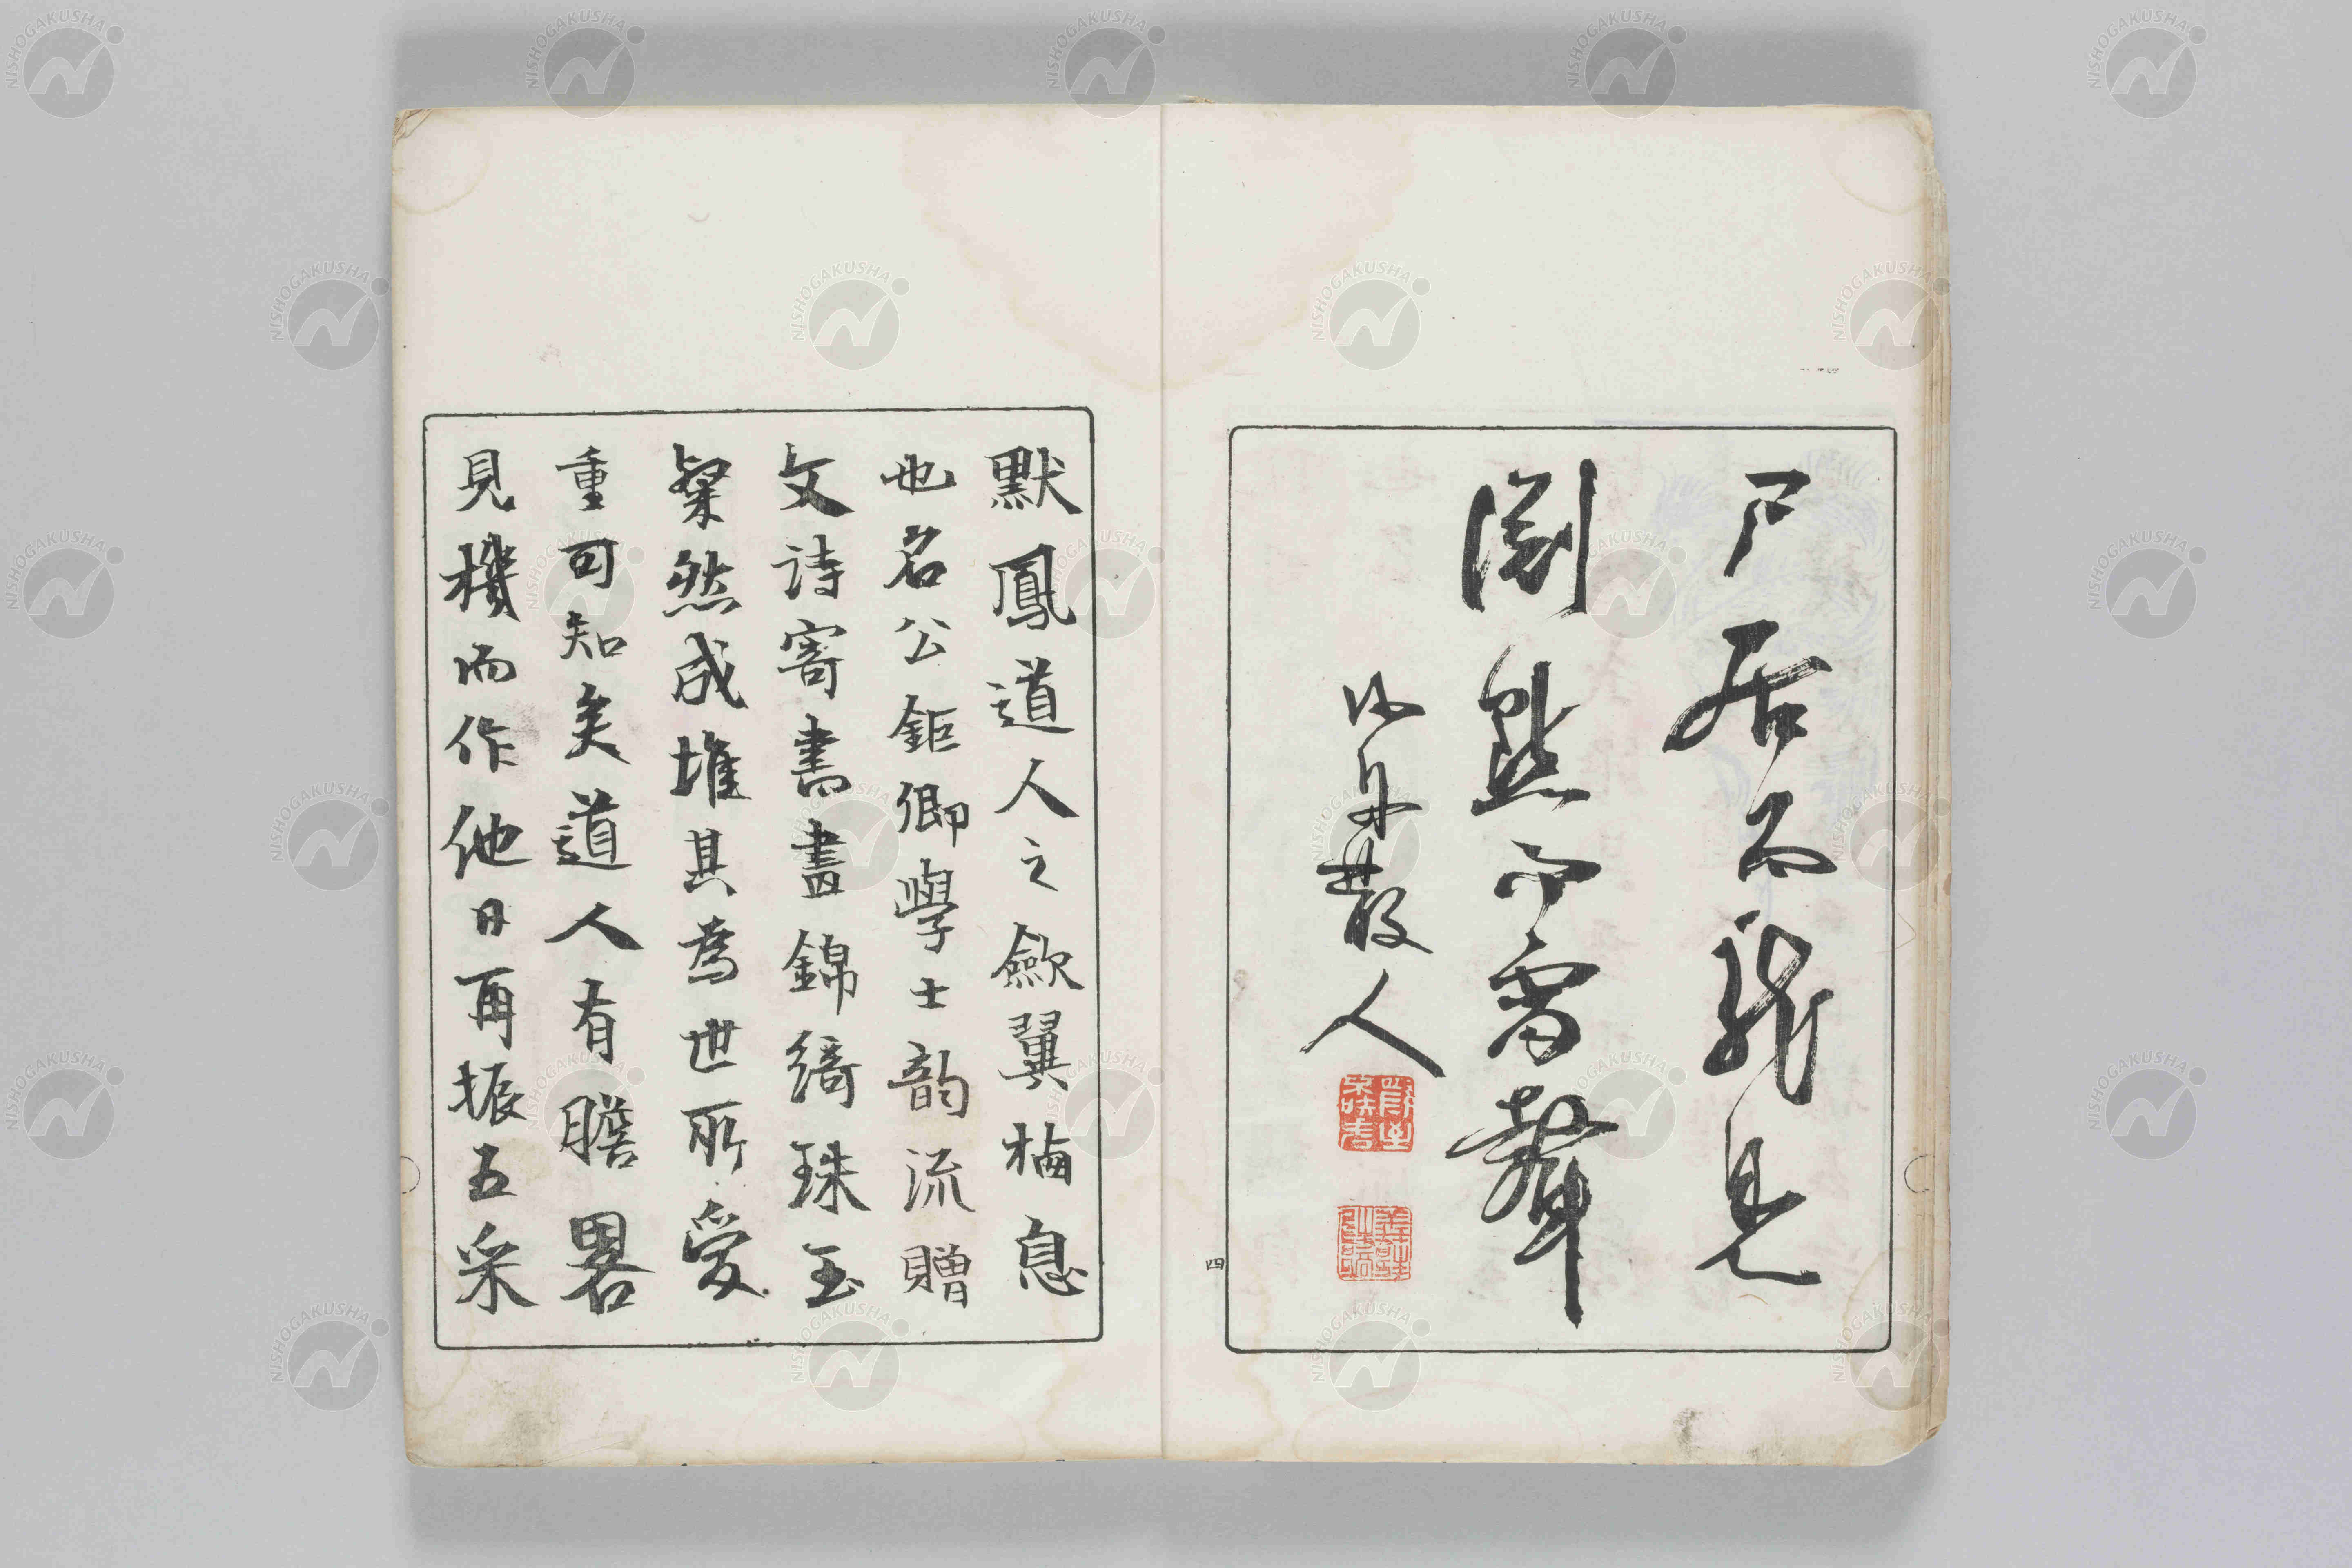 尸居而龍見
淵默而雷聲
散人
四
默鳳道人之歛翼栖息
也名公鉅卿學士韵流贈
文詩寄書畫錦綺珠玉
粲然成堆其為世所愛
重可知矣道人有膽畧
見機而作他日再振五采
NISHOGAKUSHA